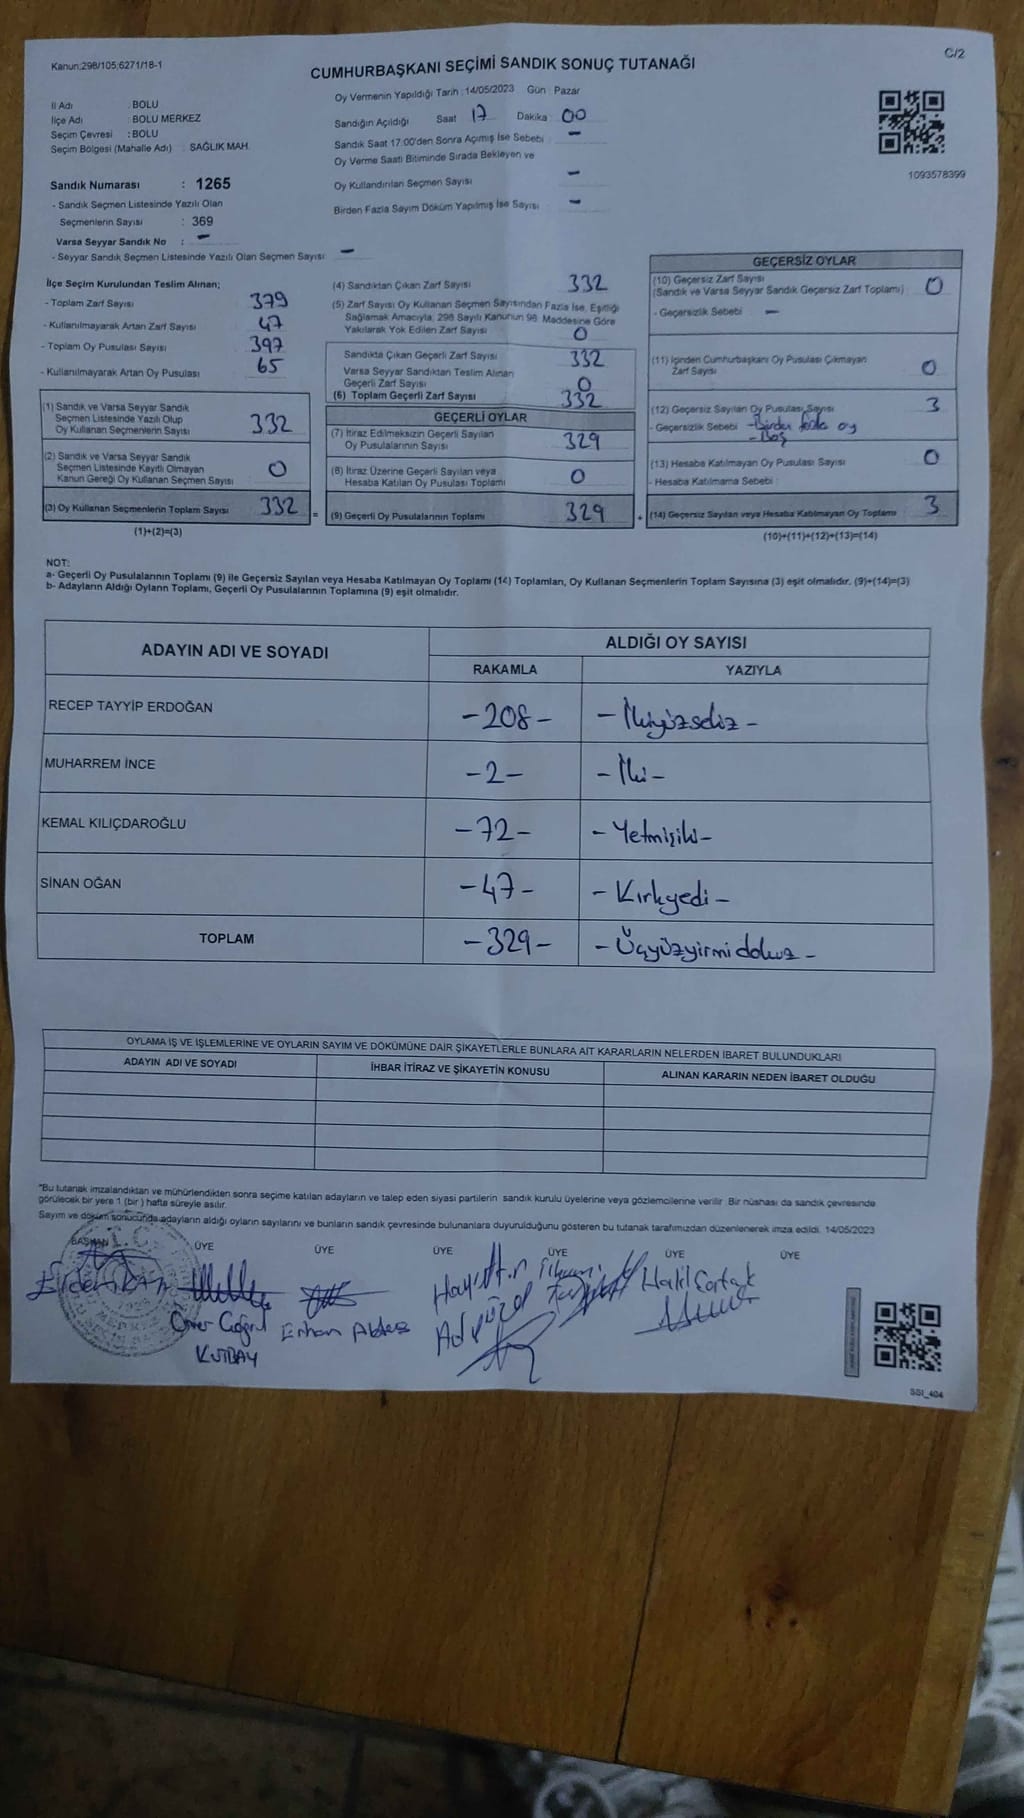 Kanun:298/105;6271/18-1
C/2
CUMHURBAŞKANI SEÇİMİ SANDIK SONUÇ TUTANAĞI
İl Adı : BOLU
İlçe Adı : BOLU MERKEZ
Seçim Çevresi : BOLU
Seçim Bölgesi (Mahalle Adı) : SAĞLIK MAH.
Sandık Numarası : 1265
- Sandık Seçmen Listesinde Yazılı Olan
Seçmenlerin Sayısı : 369
Varsa Seyyar Sandık No : -
- Seyyar Sandık Seçmen Listesinde Yazılı Olan Seçmen Sayısı : -
Oy Vermenin Yapıldığı Tarih : 14/05/2023 Gün : Pazar
Sandığın Açıldığı Saat 17 Dakika 00
Sandık Saat 17:00'den Sonra Açımış İse Sebebi : -
Oy Verme Saati Bitiminde Sırada Bekleyen ve
Oy Kullandırılan Seçmen Sayısı -
Birden Fazla Sayım Döküm Yapılmış İse Sayısı : -
1093578399
İlçe Seçim Kurulundan Teslim Alınan;
- Toplam Zarf Sayısı 379
- Kullanılmayarak Artan Zarf Sayısı 47
- Toplam Oy Pusulası Sayısı 397
- Kullanılmayarak Artan Oy Pusulası 65
(1) Sandık ve Varsa Seyyar Sandık
Seçmen Listesinde Yazılı Olup
Oy Kullanan Seçmenlerin Sayısı 332
(2) Sandık ve Varsa Seyyar Sandık
Seçmen Listesinde Kayıtlı Olmayan
Kanun Gereği Oy Kullanan Seçmen Sayısı 0
(3) Oy Kullanan Seçmenlerin Toplam Sayısı 332 =
(1)+(2)=(3)
(4) Sandıktan Çıkan Zarf Sayısı 332
(5) Zarf Sayısı Oy Kullanan Seçmen Sayısından Fazla İse, Eşitliği
Sağlamak Amacıyla, 298 Sayılı Kanunun 98. Maddesine Göre
Yakılarak Yok Edilen Zarf Sayısı 0
Sandıkta Çıkan Geçerli Zarf Sayısı 332
Varsa Seyyar Sandıktan Teslim Alınan
Geçerli Zarf Sayısı 0
(6) Toplam Geçerli Zarf Sayısı 332
GEÇERLİ OYLAR
(7) İtiraz Edilmeksizin Geçerli Sayılan
Oy Pusulalarının Sayısı 329
(8) İtiraz Üzerine Geçerli Sayılan veya
Hesaba Katılan Oy Pusulası Toplamı 0
(9) Geçerli Oy Pusulalarının Toplamı 329 +
GEÇERSİZ OYLAR
(10) Geçersiz Zarf Sayısı
(Sandık ve Varsa Seyyar Sandık Geçersiz Zarf Toplamı) : 0
- Geçersizlik Sebebi -
(11) İçinden Cumhurbaşkanı Oy Pusulası Çıkmayan
Zarf Sayısı 0
(12) Geçersiz Sayılan Oy Pusulası Sayısı 3
- Geçersizlik Sebebi - Birden fazla oy
- Boş
(13) Hesaba Katılmayan Oy Pusulası Sayısı 0
- Hesaba Katılmama Sebebi :
(14) Geçersiz Sayılan veya Hesaba Katılmayan Oy Toplamı 3
(10)+(11)+(12)+(13)=(14)
NOT:
a- Geçerli Oy Pusulalarının Toplamı (9) ile Geçersiz Sayılan veya Hesaba Katılmayan Oy Toplamı (14) Toplamları, Oy Kullanan Seçmenlerin Toplam Sayısına (3) eşit olmalıdır. (9)+(14)=(3)
b- Adayların Aldığı Oyların Toplamı, Geçerli Oy Pusulalarının Toplamına (9) eşit olmalıdır.
ADAYIN ADI VE SOYADI
ALDIĞI OY SAYISI
RAKAMLA YAZIYLA
RECEP TAYYİP ERDOĞAN -208- -İkiyüzsekiz-
MUHARREM İNCE -2- -İki-
KEMAL KILIÇDAROĞLU -72- -Yetmişiki-
SİNAN OĞAN -47- -Kırkyedi-
TOPLAM -329- -Üçyüzyirmidokuz-
OYLAMA İŞ VE İŞLEMLERİNE VE OYLARIN SAYIM VE DÖKÜMÜNE DAİR ŞİKAYETLERLE BUNLARA AİT KARARLARIN NELERDEN İBARET BULUNDUKLARI
ADAYIN ADI VE SOYADI İHBAR İTİRAZ VE ŞİKAYETİN KONUSU ALINAN KARARIN NEDEN İBARET OLDUĞU
"Bu tutanak imzalandıktan ve mühürlendikten sonra seçime katılan adayların ve talep eden siyasi partilerin sandık kurulu üyelerine veya gözlemcilerine verilir. Bir nüshası da sandık çevresinde
görülecek bir yere 1 (bir) hafta süreyle asılır.
Sayım ve döküm sonucunda adayların aldığı oyların sayılarını ve bunların sandık çevresinde bulunanlara duyurulduğunu gösteren bu tutanak tarafımızdan düzenlenerek imza edildi. 14/05/2023
BAŞKAN ÜYE ÜYE ÜYE ÜYE ÜYE ÜYE
Halil
Erhan
KUTBAY
SSI_404